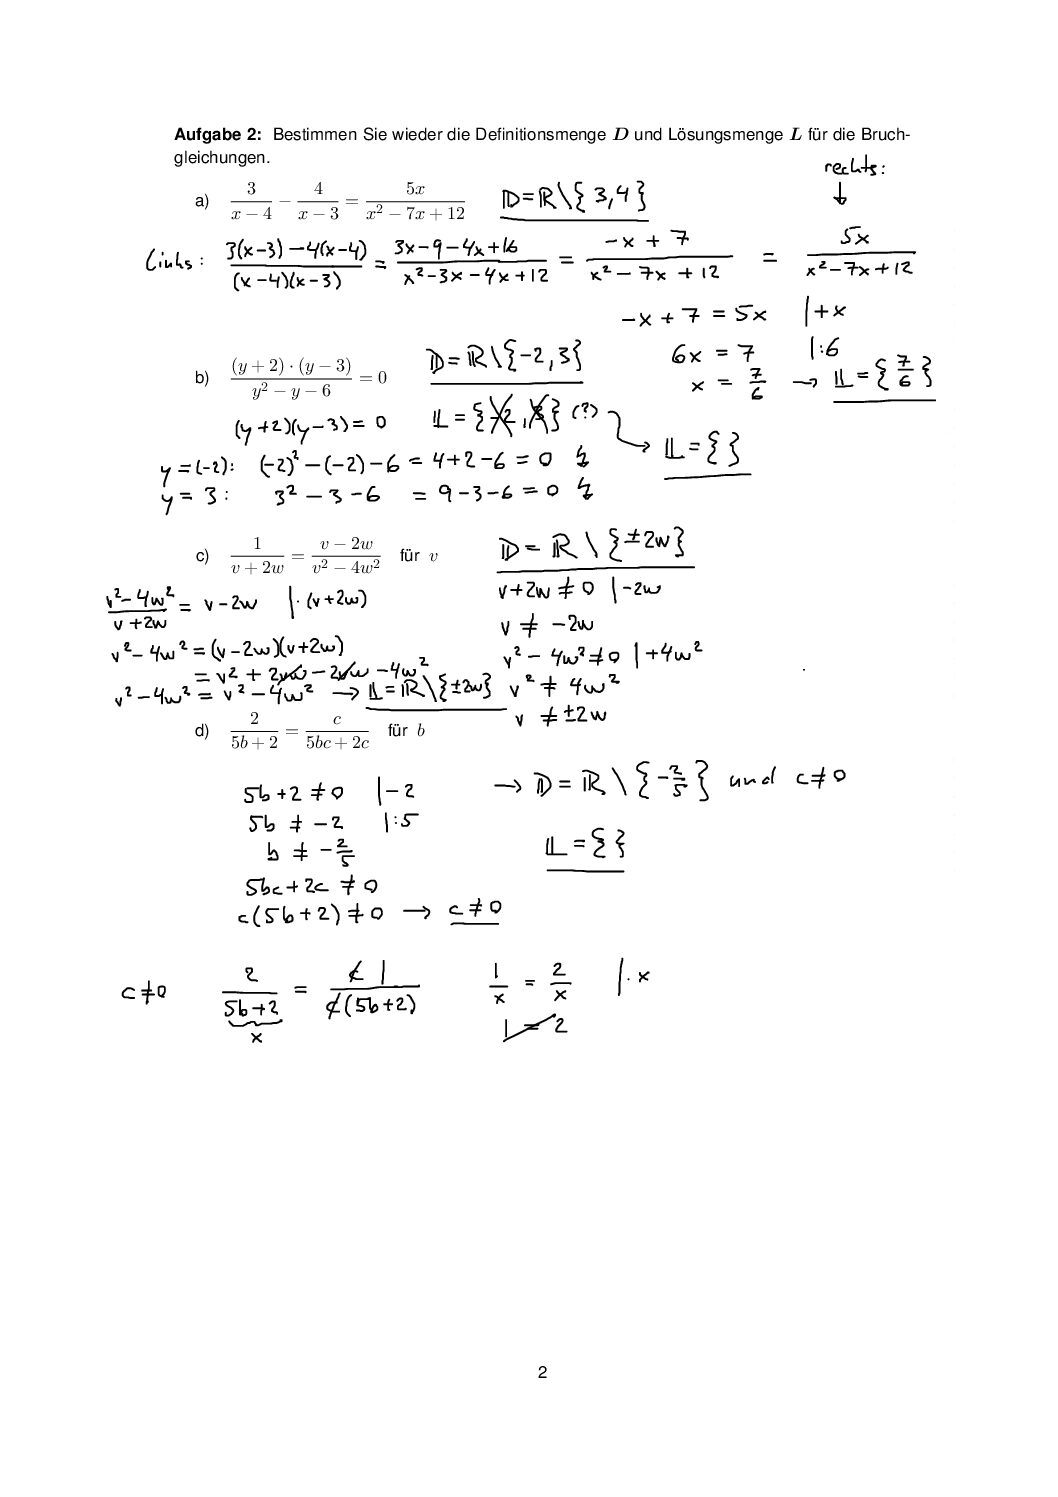 Aufgabe 2: Bestimmen Sie wieder die Definitionsmenge D und Lösungsmenge L für die Bruch-
gleichungen.
rechts:
↓
a) 3/(x − 4) − 4/(x − 3) = 5x/(x² − 7x + 12) 𝔻=ℝ\{3,4}
Links: (3(x−3)−4(x−4))/((x−4)(x−3)) = (3x−9−4x+16)/(x²−3x−4x+12) = (−x+7)/(x²−7x+12) = 5x/(x²−7x+12)
−x+7 = 5x |+x
6x = 7 |:6
x = 7/6 → 𝕃={7/6}
b) ((y + 2) · (y − 3))/(y² − y − 6) = 0 𝔻=ℝ\{−2,3}
(y+2)(y−3)=0 𝕃={−2,3} (?) → 𝕃={ }
y=(−2): (−2)²−(−2)−6 = 4+2−6 = 0 ↯
y=3: 3²−3−6 = 9−3−6 = 0 ↯
c) 1/(v + 2w) = (v − 2w)/(v² − 4w²) für v 𝔻=ℝ\{±2w}
(v²−4w²)/(v+2w) = v−2w |·(v+2w)
v²−4w² = (v−2w)(v+2w)
= v²+2vw−2vw−4w²
v²−4w² = v²−4w² → 𝕃=ℝ\{±2w}
v+2w ≠ 0 |−2w
v ≠ −2w
v²−4w² ≠ 0 |+4w²
v² ≠ 4w²
v ≠ ±2w
d) 2/(5b + 2) = c/(5bc + 2c) für b
5b+2 ≠ 0 |−2 → 𝔻=ℝ\{−2/5} und c≠0
5b ≠ −2 |:5
b ≠ −2/5 𝕃={ }
5bc+2c ≠ 0
c(5b+2) ≠ 0 → c≠0
c≠0 2/(5b+2) = c 1/(c(5b+2)) 1/x = 2/x |·x
x 1 = 2
2